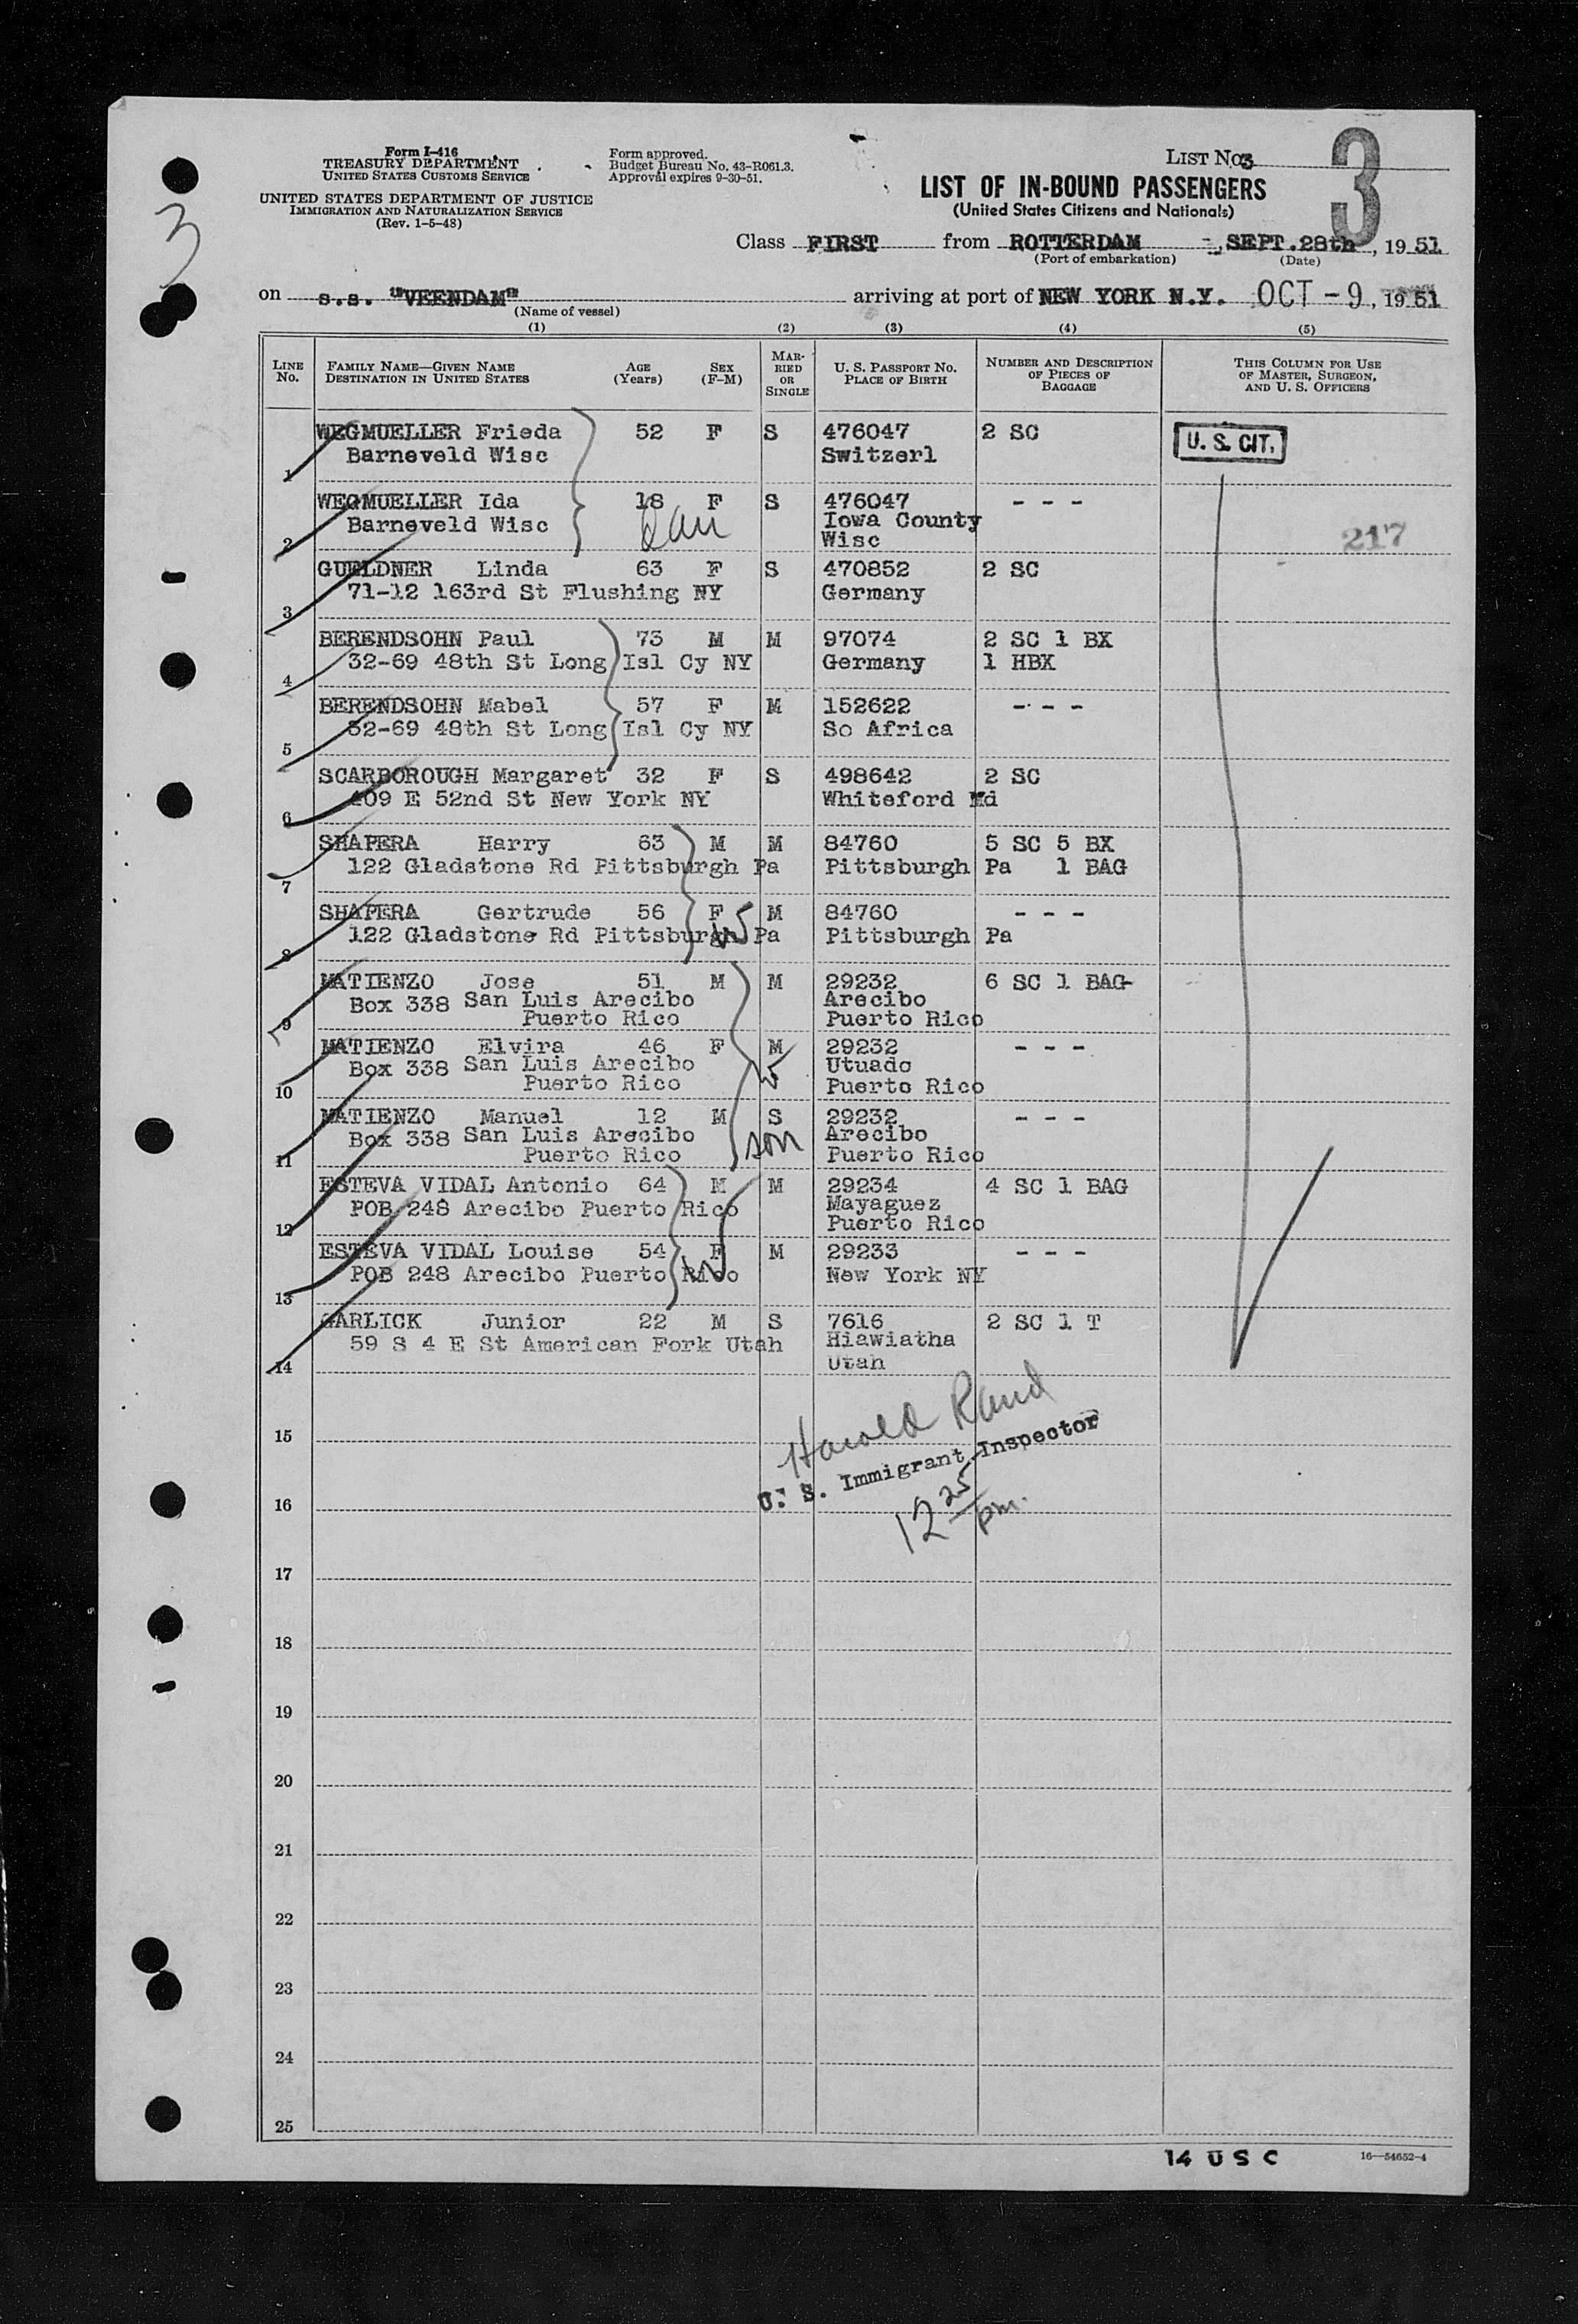 Form I-416
TREASURY DEPARTMENT
UNITED STATES CUSTOMS SERVICE
UNITED STATES DEPARTMENT OF JUSTICE
IMMIGRATION AND NATURALIZATION SERVICE
(Rev. 1-5-48)
Form approved.
Budget Bureau No. 43-R061.3.
Approval expires 9-30-51.
LIST No. 3
3
3
LIST OF IN-BOUND PASSENGERS
(United States Citizens and Nationals)
Class FIRST from ROTTERDAM - SEPT.28th, 1951
(Port of embarkation) (Date)
on s.s. "VEENDAM" arriving at port of NEW YORK N.Y. OCT -9, 1951
(Name of vessel)
(1) (2) (3) (4) (5)
LINE No. FAMILY NAME—GIVEN NAME DESTINATION IN UNITED STATES AGE (Years) SEX (F-M) MARRIED OR SINGLE U. S. PASSPORT No. PLACE OF BIRTH NUMBER AND DESCRIPTION OF PIECES OF BAGGAGE THIS COLUMN FOR USE OF MASTER, SURGEON, AND U. S. OFFICERS
WEGMUELLER Frieda 52 F S 476047 2 SC U. S. CIT.
1 Barneveld Wisc Switzerl
WEGMUELLER Ida 18 F S 476047 - - -
Barneveld Wisc dau Iowa County 217
2 Wisc
GUELDNER Linda 63 F S 470852 2 SC
3 71-12 163rd St Flushing NY Germany
BERENDSOHN Paul 73 M M 97074 2 SC 1 BX
4 32-69 48th St Long Isl Cy NY Germany 1 HBX
BERENDSOHN Mabel 57 F M 152622 - - -
5 32-69 48th St Long Isl Cy NY So Africa
SCARBOROUGH Margaret 32 F S 498642 2 SC
6 409 E 52nd St New York NY Whiteford Md
SHAPERA Harry 63 M M 84760 5 SC 5 BX
7 122 Gladstone Rd Pittsburgh Pa Pittsburgh Pa 1 BAG
SHAPERA Gertrude 56 F W M 84760 - - -
8 122 Gladstone Rd Pittsburgh Pa Pittsburgh Pa
MATIENZO Jose 51 M M 29232 6 SC 1 BAG
Box 338 San Luis Arecibo Arecibo
9 Puerto Rico Puerto Rico
MATIENZO Elvira 46 F M 29232 - - -
Box 338 San Luis Arecibo W Utuado
10 Puerto Rico Puerto Rico
MATIENZO Manuel 12 M S 29232 - - -
Box 338 San Luis Arecibo son Arecibo
11 Puerto Rico Puerto Rico
ESTEVA VIDAL Antonio 64 M M 29234 4 SC 1 BAG
POB 248 Arecibo Puerto Rico Mayaguez
12 Puerto Rico
ESTEVA VIDAL Louise 54 F M 29233 - - -
13 POB 248 Arecibo Puerto Rico W New York NY
GARLICK Junior 22 M S 7616 2 SC 1 T
59 S 4 E St American Fork Utah Hiawiatha
14 Utah
Harold Rand
15
U. S. Immigrant Inspector
16
12 25 pm.
17
18
19
20
21
22
23
24
25
14 U S C
16—54652-4